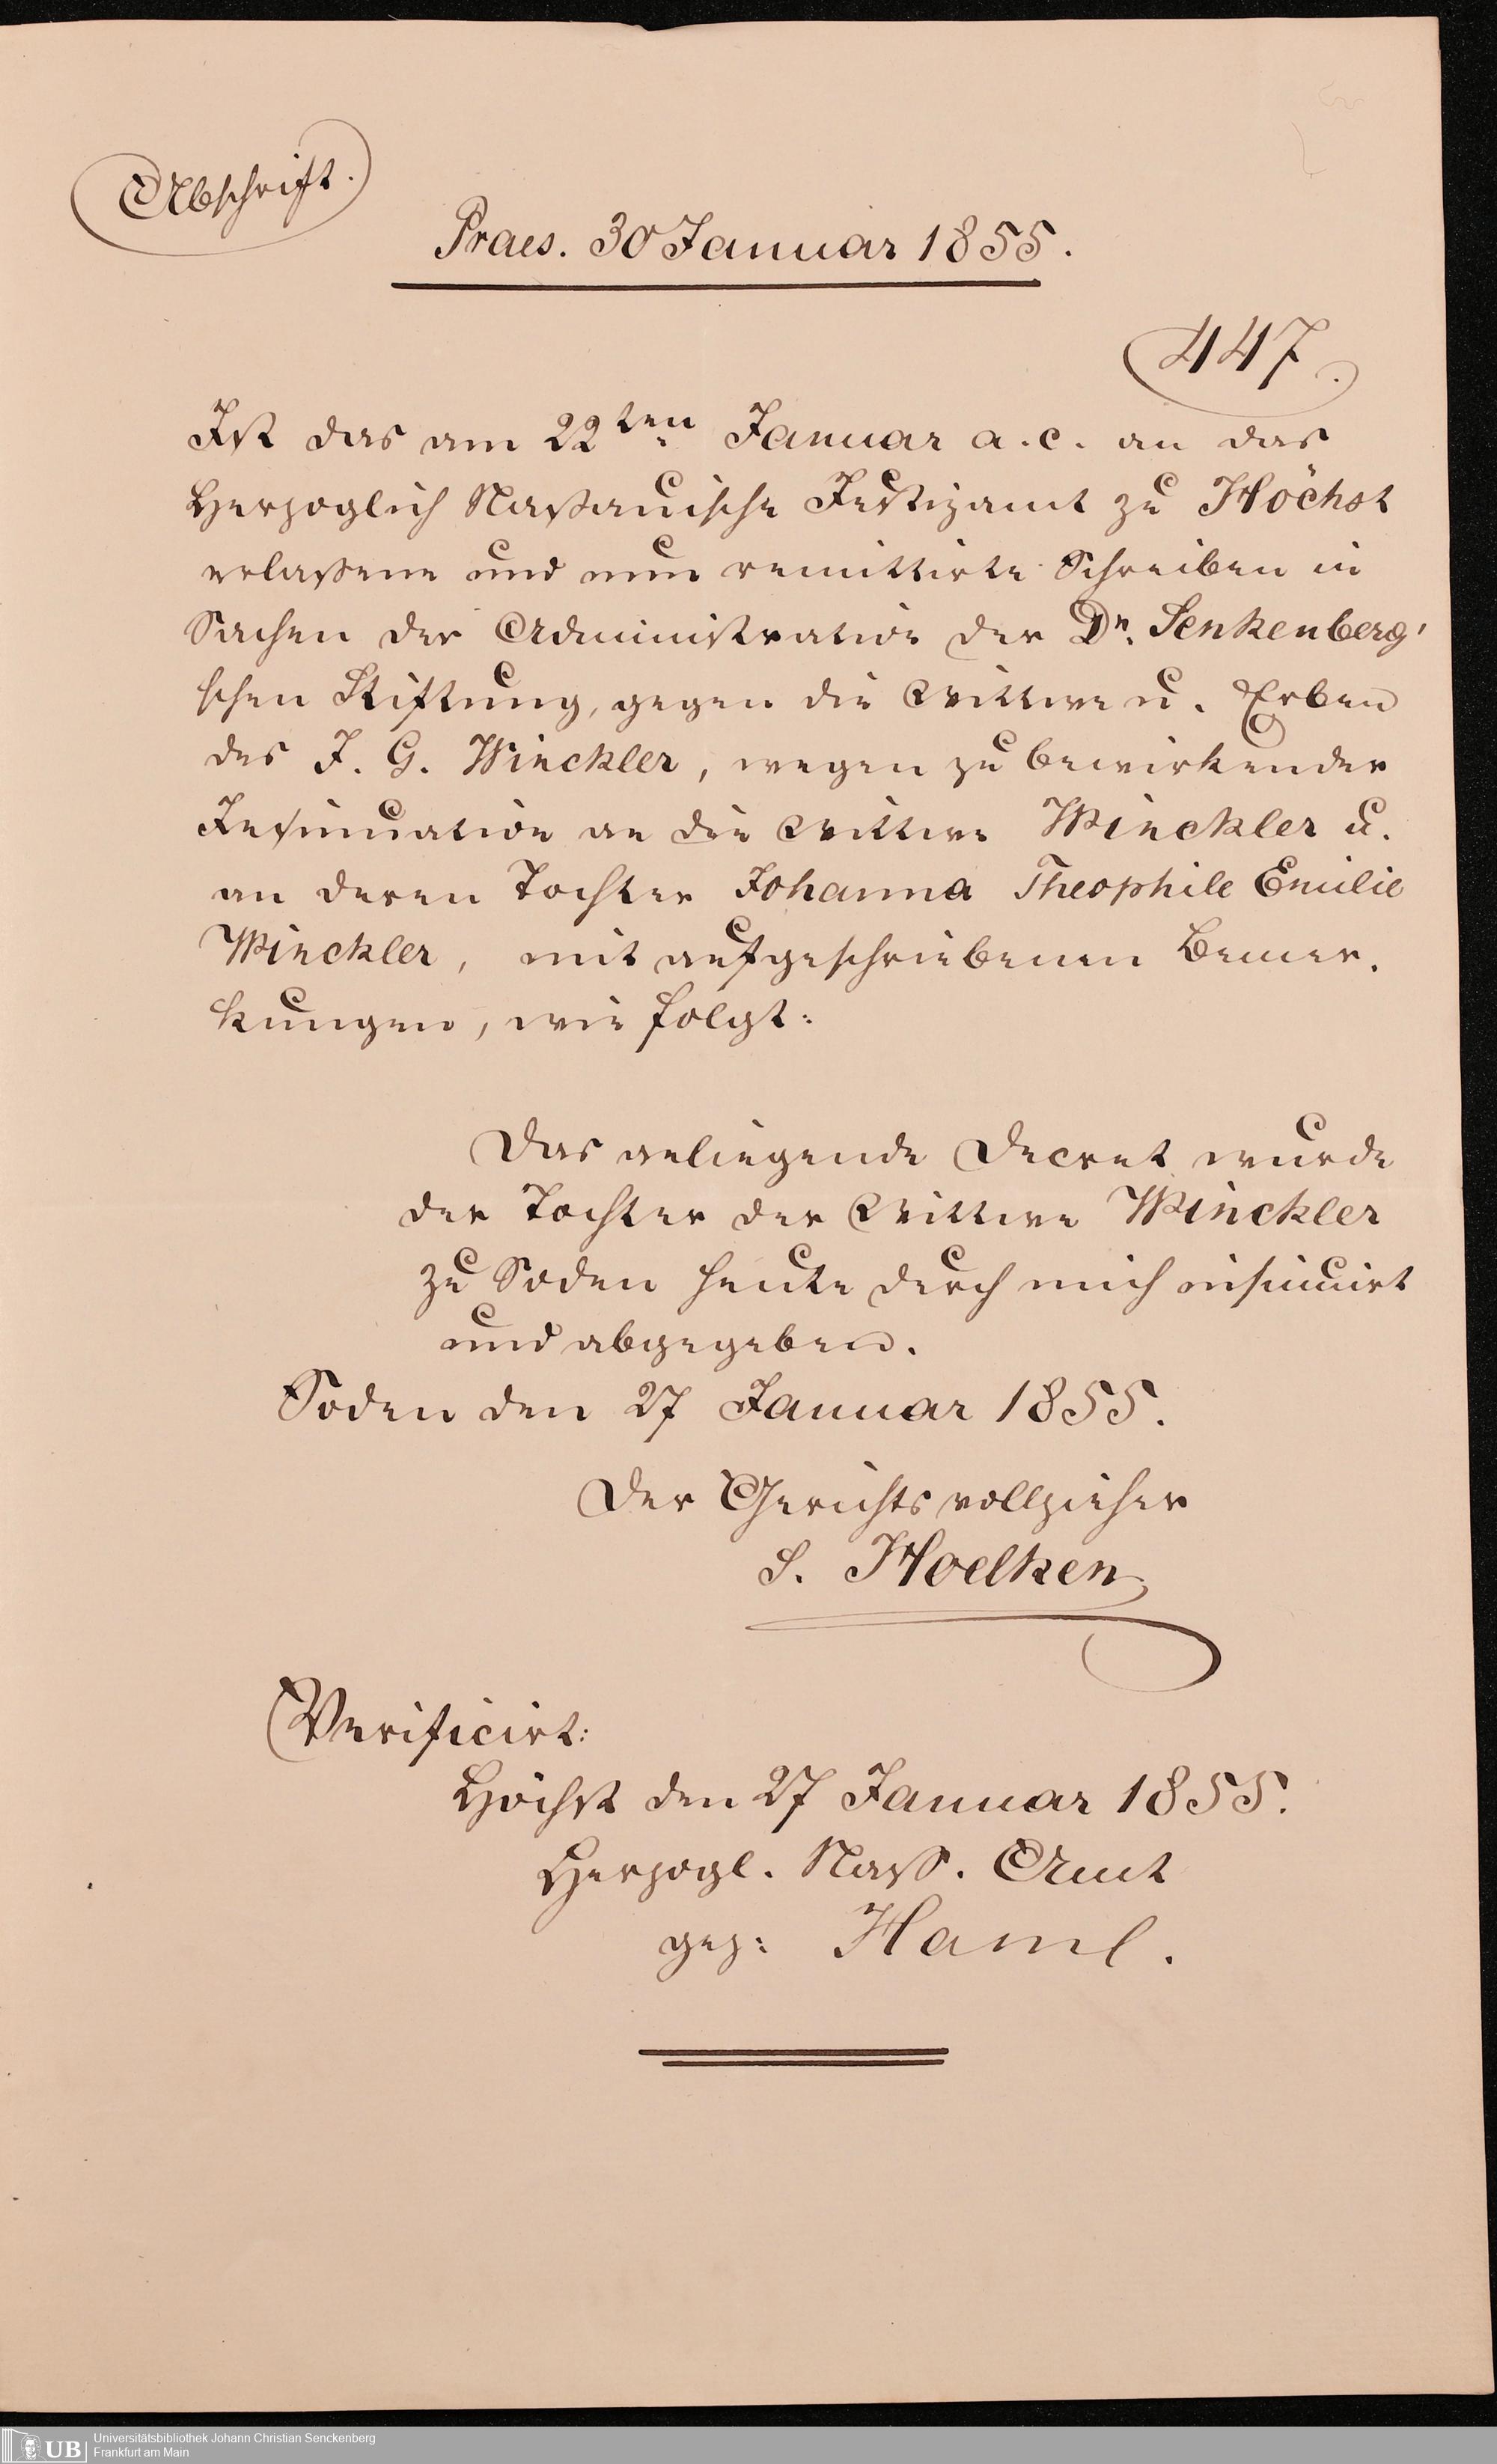 Abschrift.
Praes. 30 Januar 1855.
447.
Ist das am 22ten Januar a. c. an das
Herzoglich Naßauische Justizamt zu Höchst
erlaßene und nun remittirte Schreiben in
Sachen der Administration der Dr. Senkenberg'
schen Stiftung, gegen die Wittwe u. Erben
des J. G. Winckler, wegen zu bewirkender
Insinuation an die Wittwe Winckler u.
an deren Tochter Johanna Theophile Emilie
Winckler, mit aufgeschriebenen Bemer-
kungen, wie folgt:
Das anliegende Decret wurde
der Tochter der Wittwe Winckler
zu Soden heute durch mich insinuirt
und abgegeben.
Soden den 27 Januar 1855.
Der Gerichtsvollzieher
S. Hoelken
Verificirt:
Höchst den 27 Januar 1855.
Herzogl. Naß. Amt
gez: Haml.
UB
Universitätsbibliothek Johann Christian Senckenberg
Frankfurt am Main